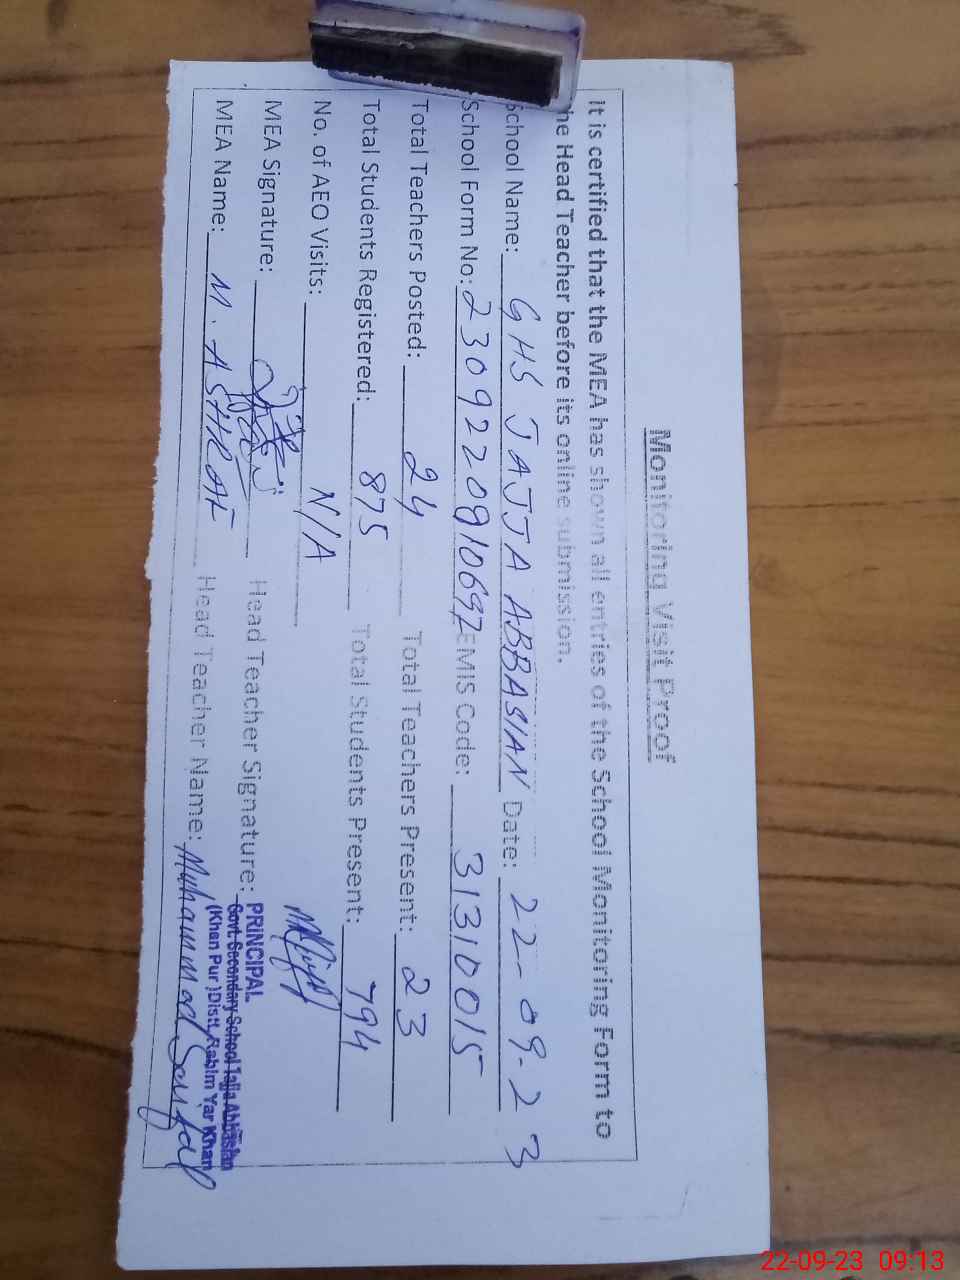 Monitoring Visit Proof
It is certified that the MEA has shown all entries of the School Monitoring Form to
he Head Teacher before its online submission.
School Name: GHS JAJJA ABBASIAN Date: 22-09-23
School Form No: 2309220910692 EMIS Code: 31310015
Total Teachers Posted: 24 Total Teachers Present: 23
Total Students Registered: 875 Total Students Present: 794
No. of AEO Visits: N/A
MEA Signature: Head Teacher Signature:
PRINCIPAL
Govt. Secondary School Jajja Abbasian
(Khan Pur) Distt. Rahim Yar Khan
MEA Name: M. ASHRAF Head Teacher Name: Muhammad Saifal
22-09-23 09:13